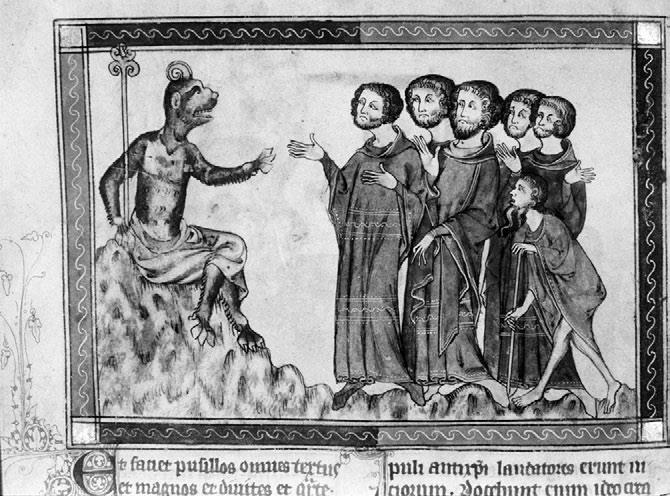 Et faciet pusillos omnes tertius
et magnos et divites et
puli antixpi laudatores erunt in
Docebunt eum ideo